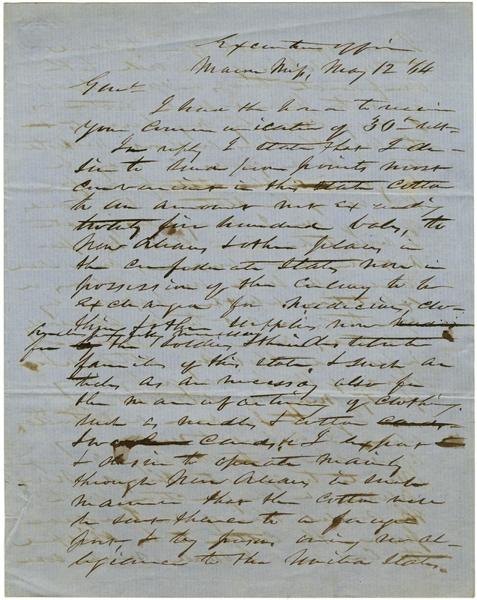 Executive office
Macon Mip, May 12 '64
Genl
I have the honor to receive
your communication of 30th ult
In reply I state that I de-
sire to send from points most
convenient in this state cotton
to an amount not exceeding
twenty five hundred bales, to
New Orleans & other places in
the confederate states now in
possession of the enemy to be
exchanged for medicines, clo-
thing & other supplies now needed
required by the
for the soldiers & their destitute
families of this state, & such ar-
ticles as are necessary also for
the manufacturing of clothing
such as needles & cotton cards
cards, & I expect
& desire to operate mainly
through New Orleans in such
manner that the cotton will
be sent thence to a foreign
port, & by persons owing no al-
legiance to the United States.